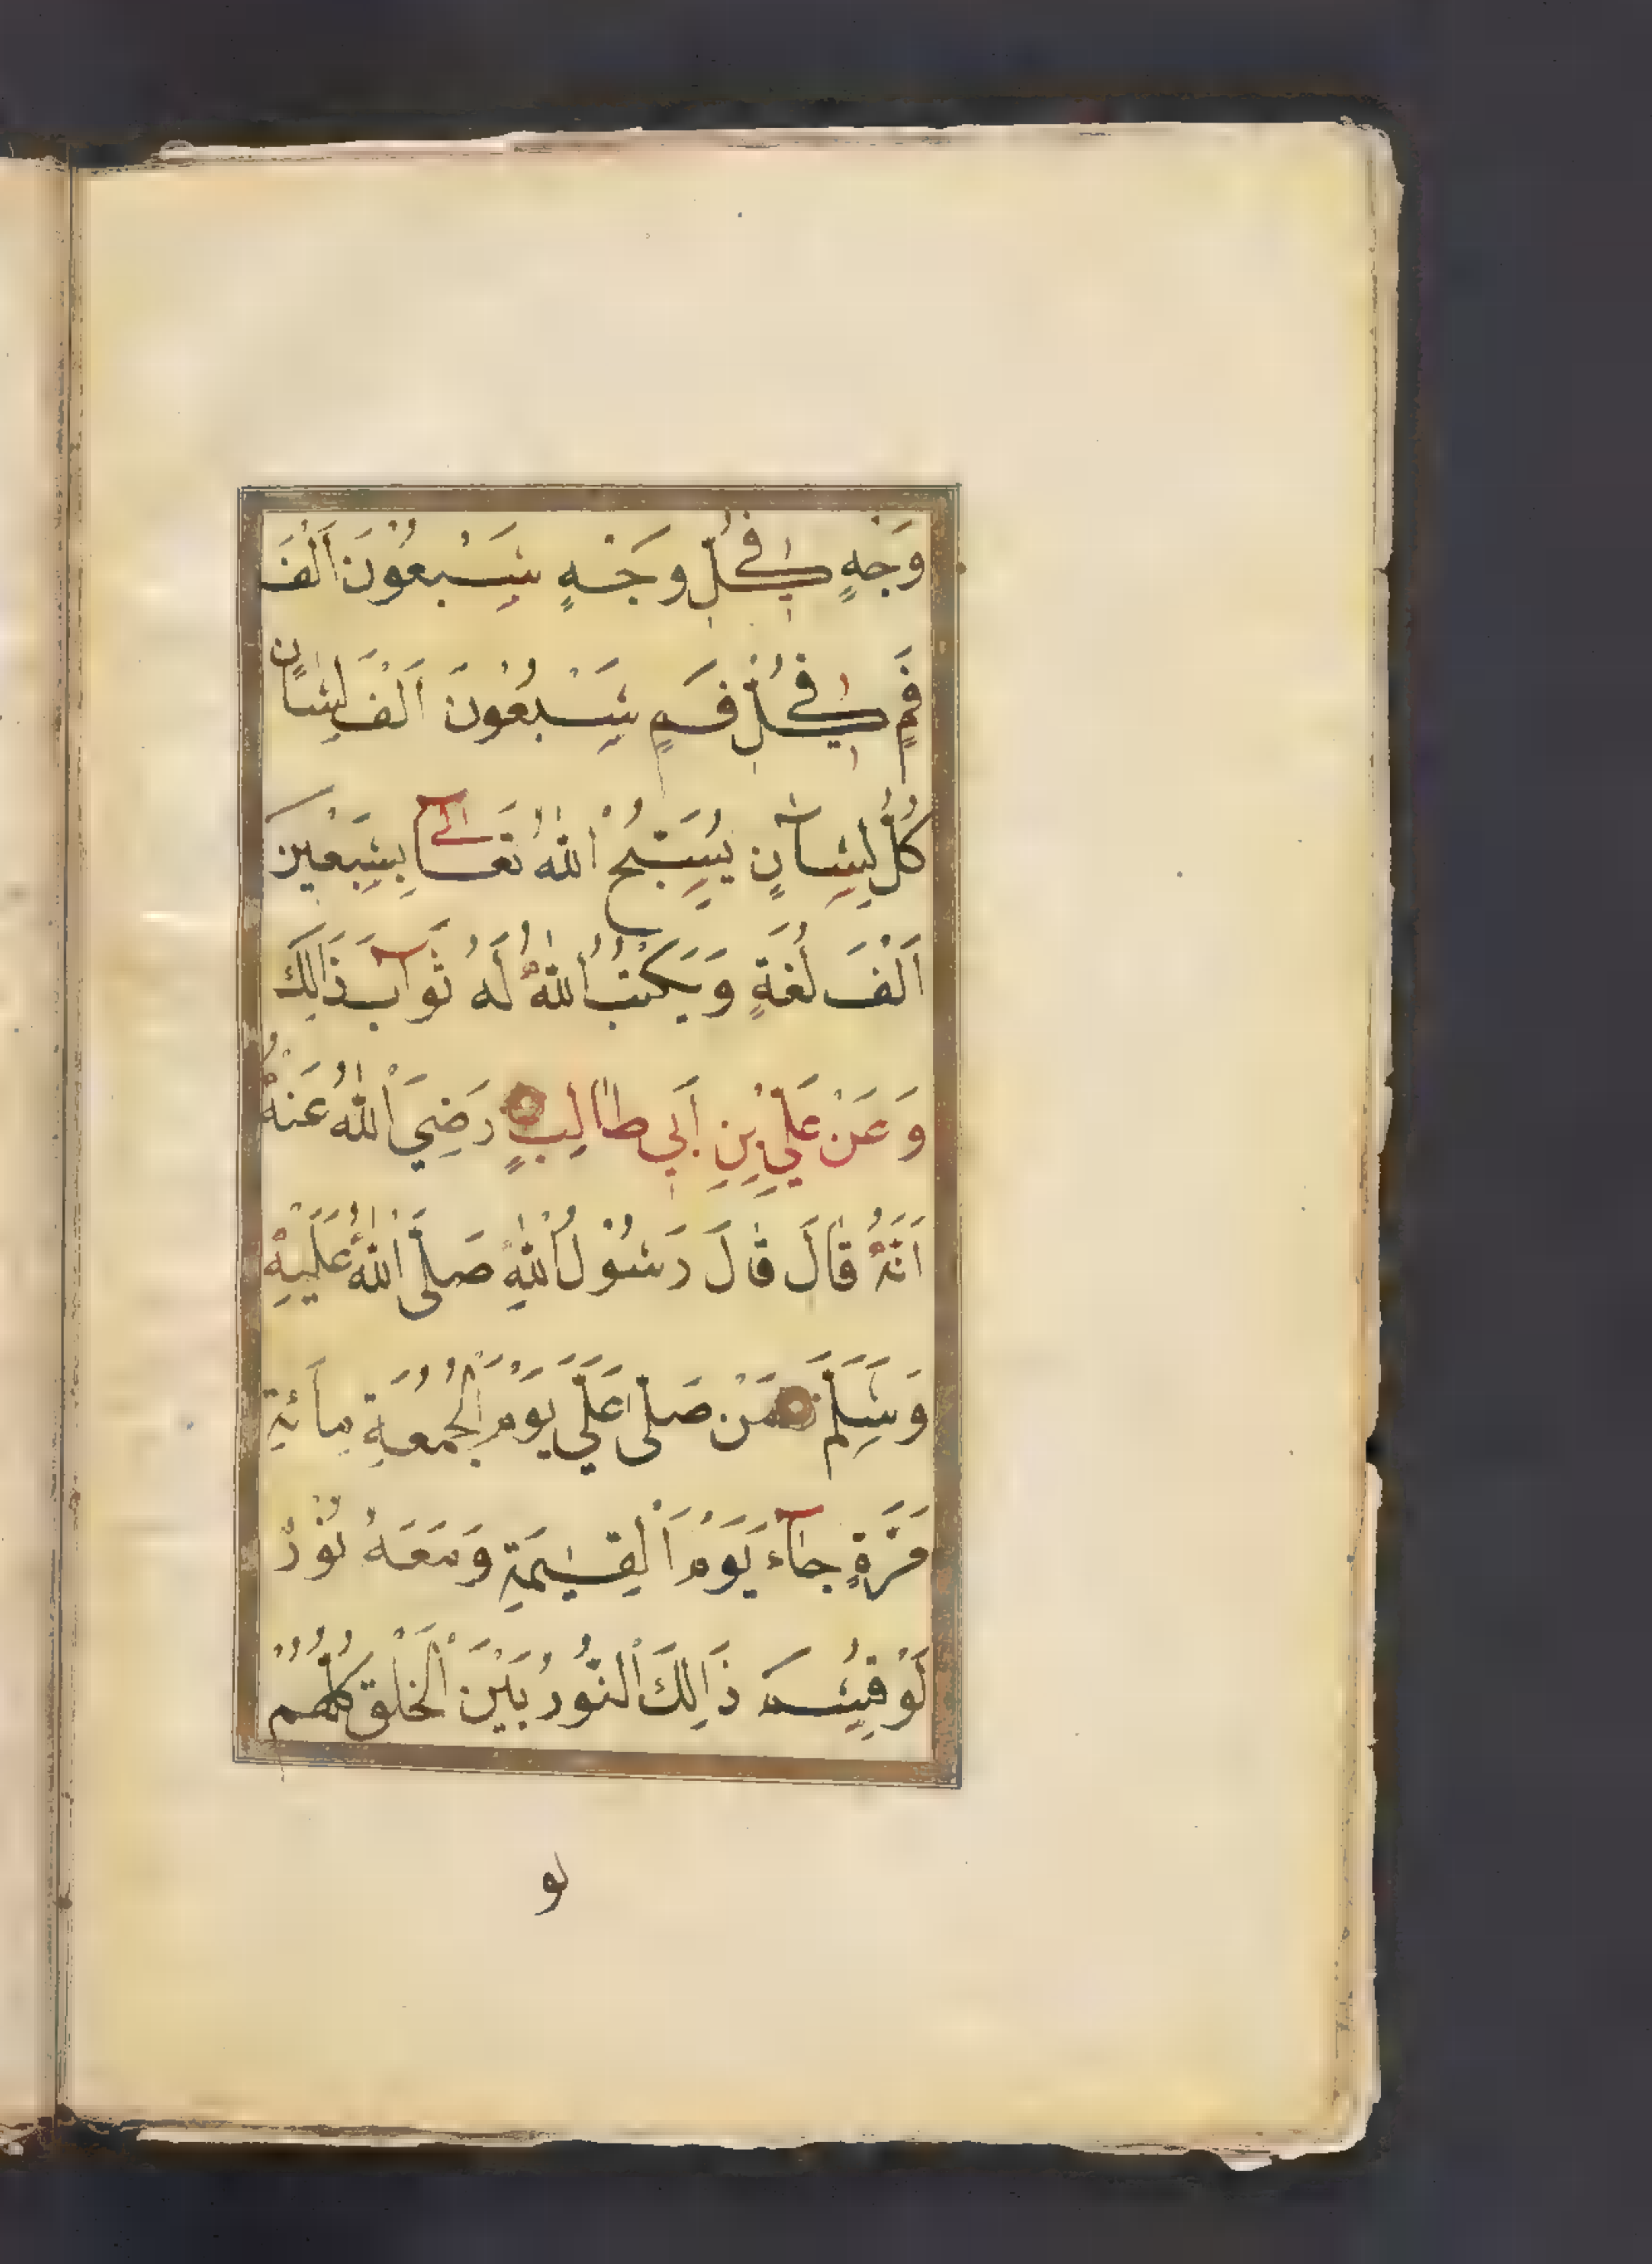 وَجْهٍ فِي كُلِّ وَجْهٍ سَبْعُونَ اَلْفَ
فَمٍ فِي كُلِّ فَمٍ سَبْعُونَ اَلْفَ لِسَانٍ
كُلُّ لِسَانٍ يُسَبِّحُ اللّٰهَ تَعَالٰى بِسَبْعِينَ
اَلْفَ لُغَةٍ وَيَكْتُبُ اللّٰهُ لَهُ ثَوَابَ ذَالِكَ
وَعَنْ عَلِيِّ بْنِ اَبِي طَالِبٍ رَضِيَ اللّٰهُ عَنْهُ
اَنَّهُ قَالَ قَالَ رَسُوْلُ اللّٰهِ صَلَّى اللّٰهُ عَلَيْهِ
وَسَلَّمَ مَنْ صَلَّى عَلَيَّ يَوْمَ الْجُمُعَةِ مِائَةَ
مَرَّةٍ جَآءَ يَوْمَ الْقِيٰمَةِ وَمَعَهُ نُوْرٌ
لَوْ قُسِمَ ذَالِكَ النُّوْرُ بَيْنَ الْخَلْقِ كُلُّهُمْ
لو